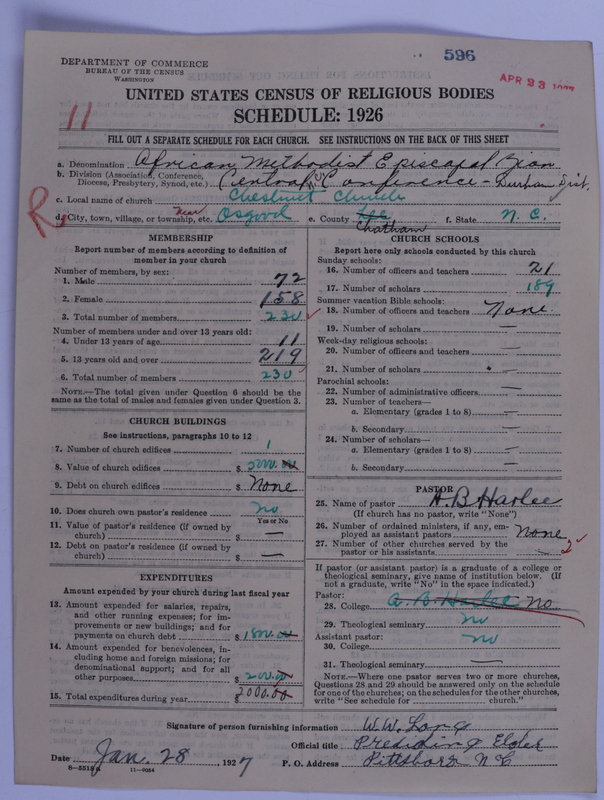 596
APR 23
DEPARTMENT OF COMMERCE
BUREAU OF THE CENSUS
WASHINGTON
UNITED STATES CENSUS OF RELIGIOUS BODIES
SCHEDULE: 1926
11
FILL OUT A SEPARATE SCHEDULE FOR EACH CHURCH. SEE INSTRUCTIONS ON THE BACK OF THIS SHEET
a. Denomination African Methodist Episcopal Zion
b. Division (Association, Conference, Diocese, Presbytery, Synod, etc.) Central N.C. Conference - Durham Dist.
c. Local name of church Chestnut Church
R
d. City, town, village, or township, etc. Near Osgood e. County Lee Chatham f. State N. C.
MEMBERSHIP
Report number of members according to definition of
member in your church
Number of members, by sex:
1. Male 72
2. Female 158
3. Total number of members 230
Number of members under and over 13 years old:
4. Under 13 years of age 11
5. 13 years old and over 219
6. Total number of members 230
NOTE.—The total given under Question 6 should be
same as the total of males and females given under Question 3.
CHURCH BUILDINGS
See instructions, paragraphs 10 to 12
7. Number of church edifices 1
8. Value of church edifices $ 5000.00
9. Debt on church edifices $ None
10. Does church own pastor's residence no
Yes or No
11. Value of pastor's residence (if owned by
church) $ —
12. Debt on pastor's residence (if owned by
church) $ —
EXPENDITURES
Amount expended by your church during last fiscal year
13. Amount expended for salaries, repairs,
and other running expenses; for im-
provements or new buildings; and for
payments on church debt $ 1800.00
14. Amount expended for benevolences, in-
cluding home and foreign missions; for
denominational support; and for all
other purposes $ 200.00
15. Total expenditures during year $ 2000.00
CHURCH SCHOOLS
Report here only schools conducted by this church
Sunday schools:
16. Number of officers and teachers 21
17. Number of scholars 189
Summer vacation Bible schools:
18. Number of officers and teachers None.
19. Number of scholars —
Week-day religious schools:
20. Number of officers and teachers —
21. Number of scholars —
Parochial schools:
22. Number of administrative officers —
23. Number of teachers—
a. Elementary (grades 1 to 8) —
b. Secondary —
24. Number of scholars—
a. Elementary (grades 1 to 8) —
b. Secondary —
PASTOR
25. Name of pastor A. B. Harlee
(If church has no pastor, write "None")
26. Number of ordained ministers, if any, em-
ployed as assistant pastors None
27. Number of other churches served by the
pastor or his assistants — 2
If pastor (or assistant pastor) is a graduate of a college or
theological seminary, give name of institution below. (If
not a graduate, write "No" in the space indicated.)
Pastor:
28. College A. B. Harlee No
29. Theological seminary no
Assistant pastor:
30. College no
31. Theological seminary —
NOTE.—Where one pastor serves two or more churches,
Questions 28 and 29 should be answered only on the schedule
for one of the churches; on the schedules for the other churches,
write "See schedule for ........ church."
Signature of person furnishing information W. W. Long
Official title Presiding Elder
Date Jan. 28, 1927 P. O. Address Pittsboro N C
8-5518 11-9054